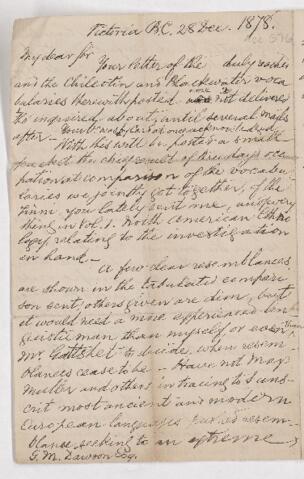 Victoria B.C. 28 Dec. 1878.
My dear Sir
Your letter of the duly reached
and the Chilcotin and Blackwater voca
bularies therewith posted not delivered
tho' enquired about, until several days
after
With this will be posted a small
packet the chief result of three days occu
pation at comparison of the vocabu
laries we jointly got together, of the
Tinne, you lately sent me, and every
thing in Vol. 1. North American Ethno
logy relating to the investigation
in hand.
A few clear resemblances
are shown in the tabulated compari
son sent, others given are dim, but
it would need a more experienced lin
guistic man than myself or even
Mr. Gatschet to decide, when resem
blances cease to be. Have not Max
Muller and others in tracing to Sans
crit most ancient and modern
European languages carried resem
blance seeking to an extreme
G. M. Dawson Esq.